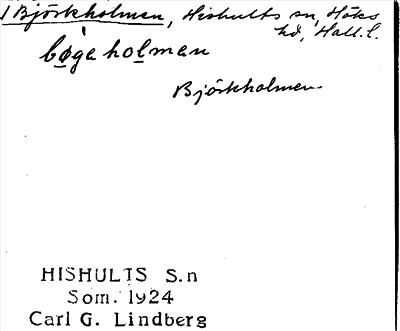 Björkholmen, Hishults sn, Höks
hd, Hall. l.
bøgaholman
Björkholmen.
HISHULTS S.n
Som. 1924
Carl G. Lindberg